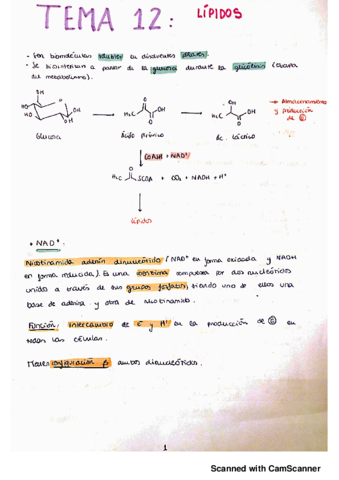 TEMA 12: LÍPIDOS
- Son biomoléculas solubles en disolventes apolares.
- Se biosintetizan a partir de la glucosa durante la glucólisis (etapa
del metabolismo).
HO
HO
OH
OH
Glucosa
H3C
OH
Ácido pirúvico
H3C
OH
OH
Ac. láctico
→ Almacenamiento
y producción
de E
COASH + NAD+
H3C SCOA + CO2 + NADH + H+
Lípidos
• NAD+:
Nicotinamida adenín dinucleótido (NAD+ en forma oxidada y NADH
en forma reducida). Es una coenzima compuesta por dos nucleótidos
unidos a través de sus grupos fosfatos, siendo uno de ellos una
base de adenina y otra de nicotinamida.
Función: intercambio de e- y H+ en la producción de E en
todas las células.
Tienen configuración β ambos dinucleótidos.
1
Scanned with CamScanner